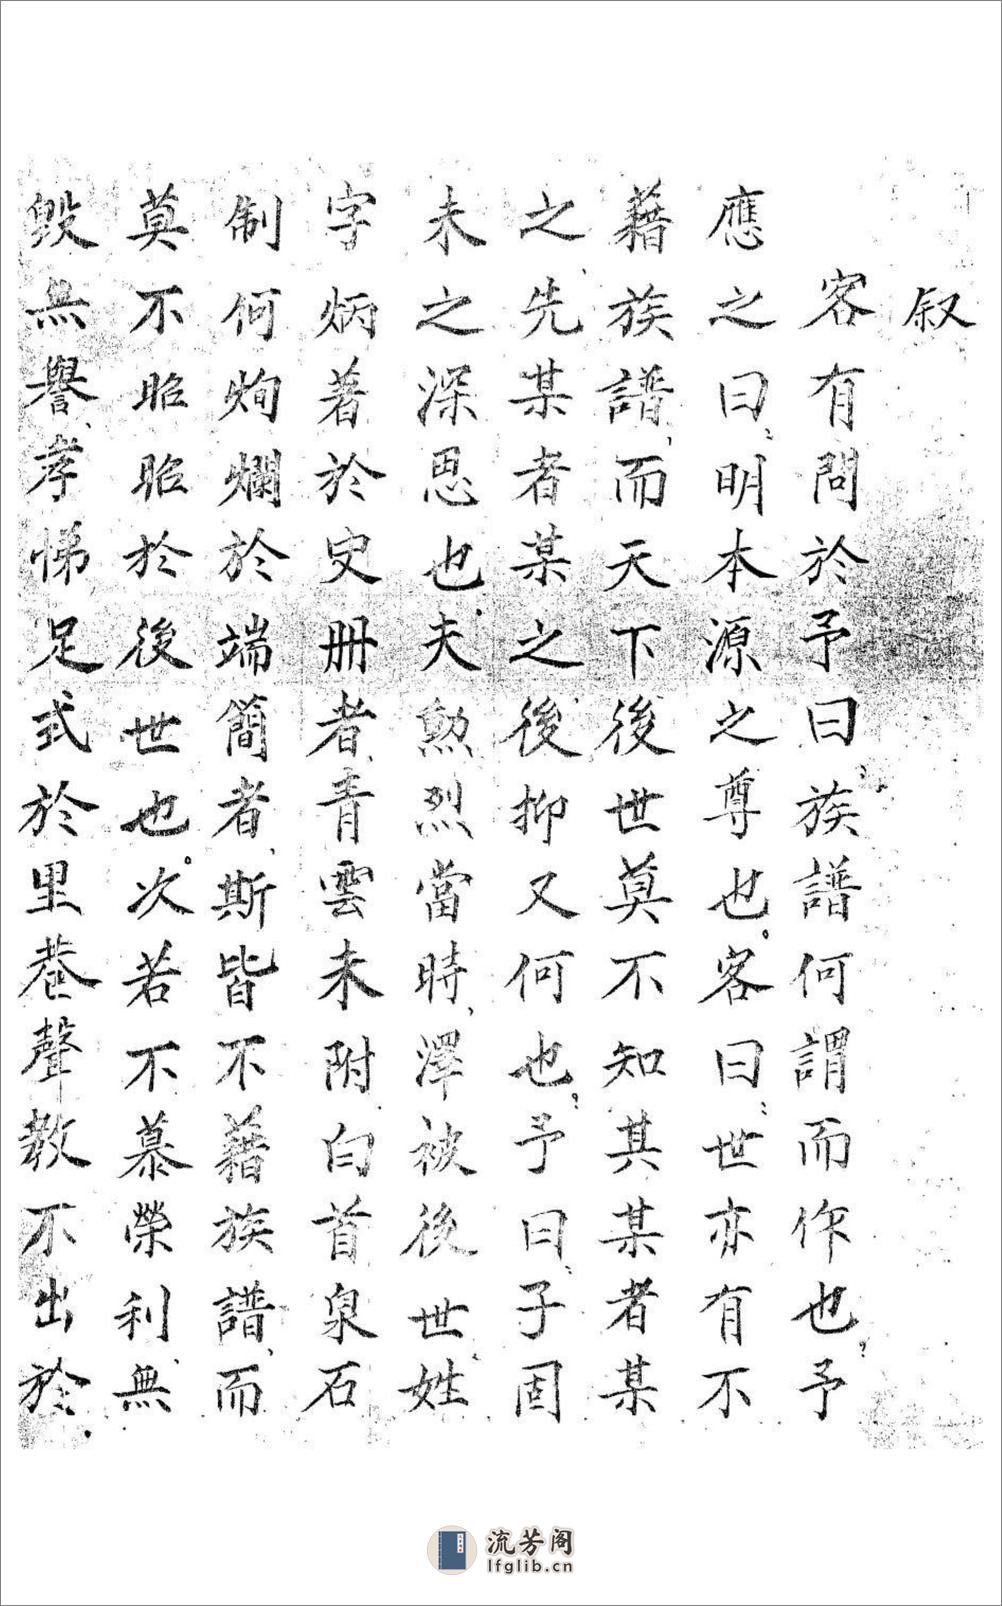 叙
客有問於予曰族譜何謂而作也予
應之曰明本源之尊也客曰世亦有不
藉族譜而天下後世莫不知其某者某
之先某者某之後抑又何也予曰子固
未之深思也夫勲烈當時澤被後世姓
字炳著於史册者青雲未附白首泉石
制何炯爛於端簡者斯皆不藉族譜而
莫不昭昭於後世也次若不慕榮利無
毀無譽孝悌足式於里巷聲教不出於
流芳阁
lfglib.cn